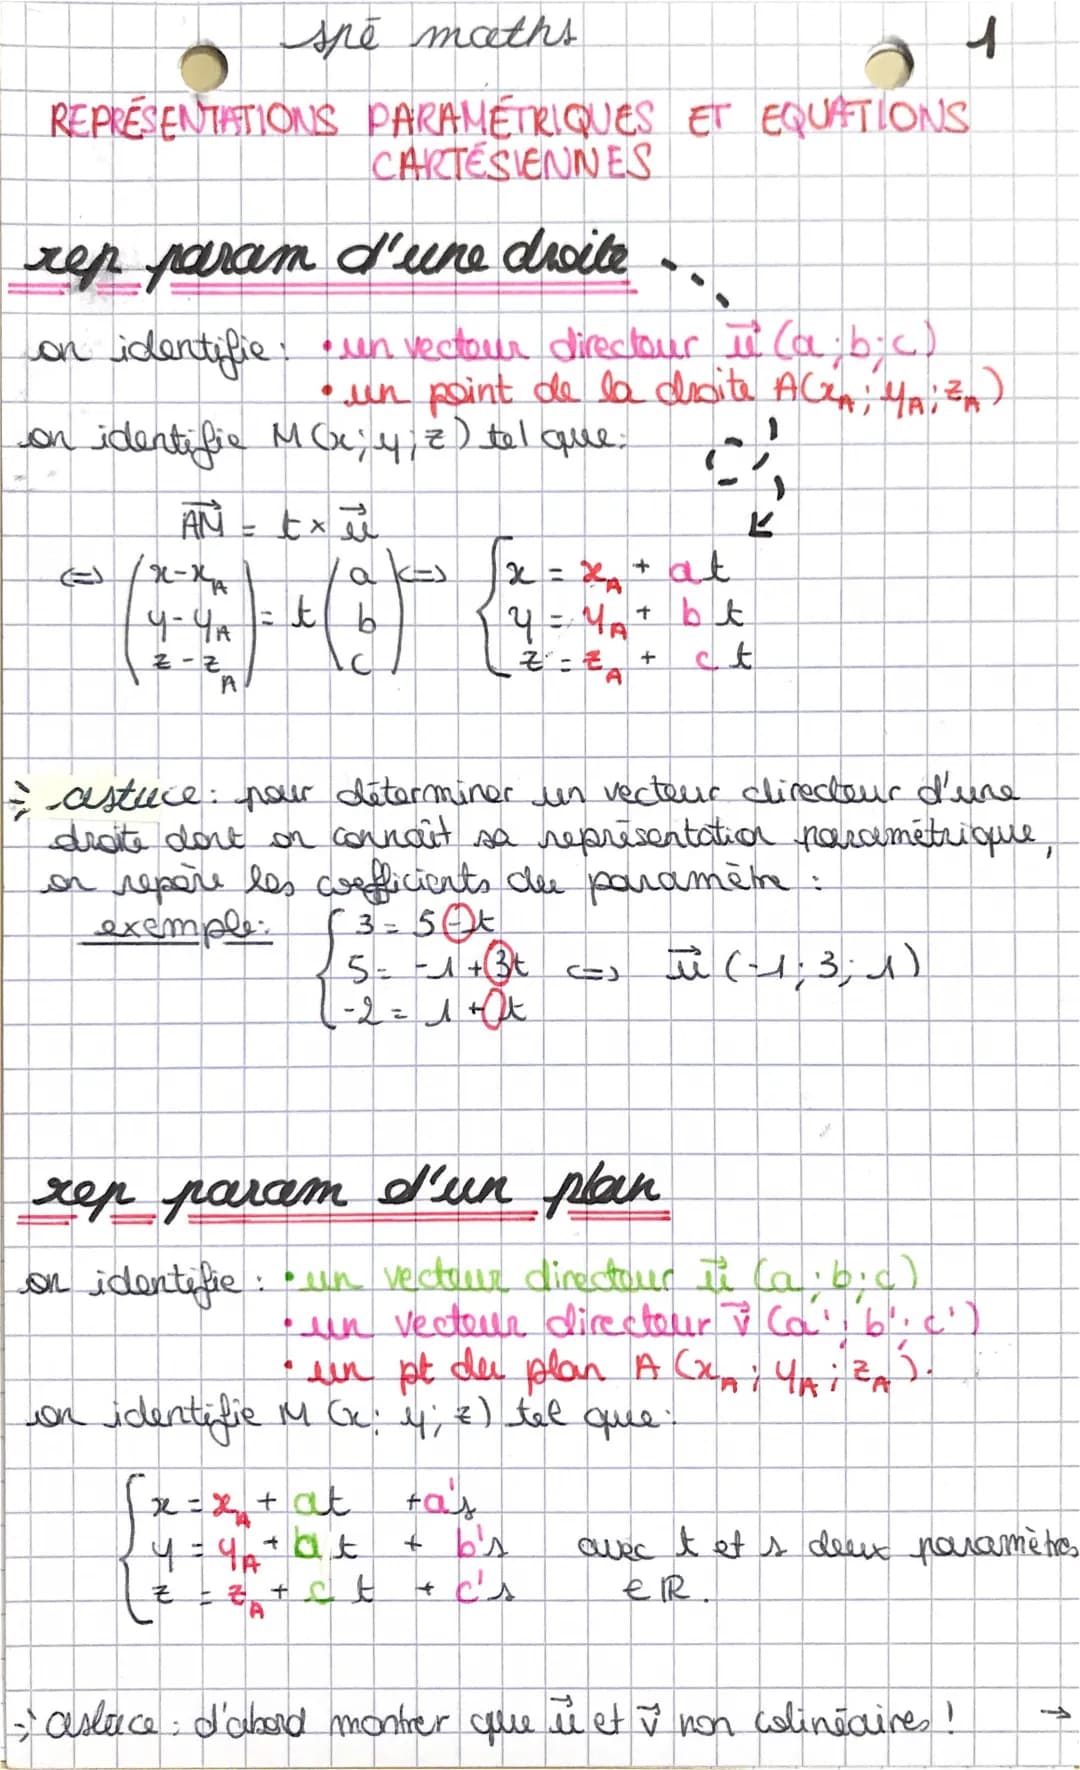 spé maths 1
REPRÉSENTATIONS PARAMÉTRIQUES ET EQUATIONS
CARTÉSIENNES
rep param d'une droite
on identifie : • un vecteur directeur u⃗ (a ; b ; c)
• un point de la droite A(x_A ; y_A ; z_A)
on identifie M(x ; y ; z) tel que :
AM⃗ = t × u⃗
⇔ (x - x_A ; y - y_A ; z - z_A) = t (a ; b ; c) ⇔ { x = x_A + at
y = y_A + bt
z = z_A + ct
astuce : pour déterminer un vecteur directeur d'une
droite dont on connaît sa représentation paramétrique,
on repère les coefficients du paramètre :
exemple : { 3 = 5 - t
5 = -1 + 3t ⇔ u⃗ (-1 ; 3 ; 1)
-2 = 1 + t
rep param d'un plan
on identifie : • un vecteur directeur u⃗ (a ; b ; c)
• un vecteur directeur v⃗ (a' ; b' ; c')
• un pt du plan A (x_A ; y_A ; z_A).
on identifie M (x ; y ; z) tel que :
{ x = x_A + at + a's
y = y_A + bt + b's avec t et s deux paramètres
z = z_A + ct + c's ∈ ℝ.
astuce : d'abord montrer que u⃗ et v⃗ non colinéaires ! →